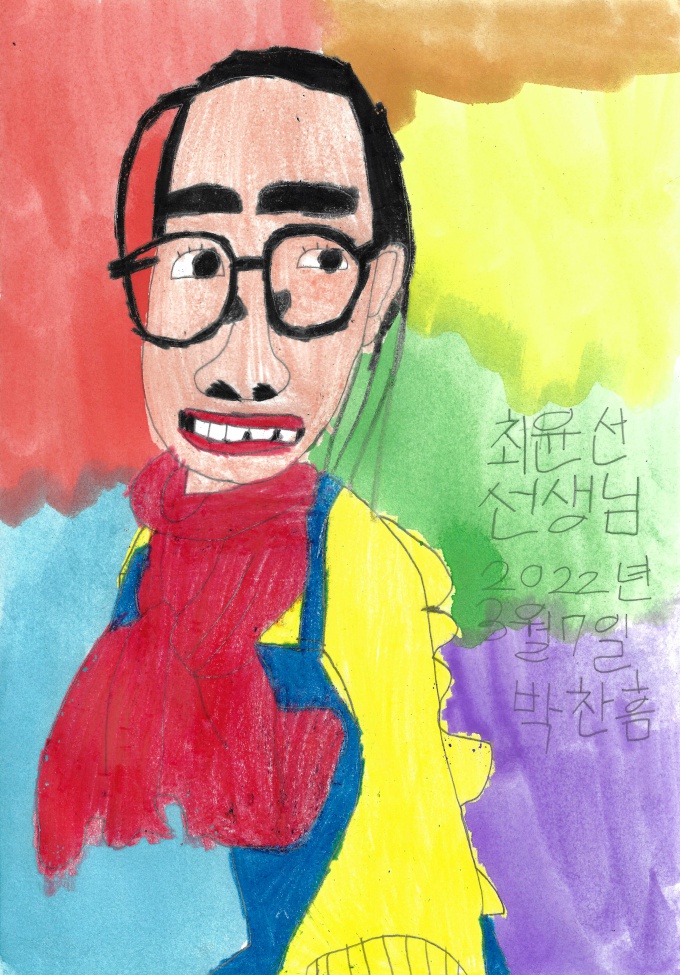 최윤선
선생님
2022년
3월7일
박찬흠